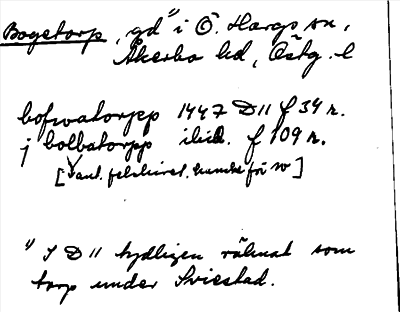 Bogetorp, gd" i Ö. Hargs sn,
Åkerbo hd, Östg. l
bofwatorpp 1447 D 11 f 34 r.
j bolbatorpp ibid. f 109 r.
[Sant. felskrivet, kunske för w]
" I D 11 tydligen räknat som
torp under Sviestad.